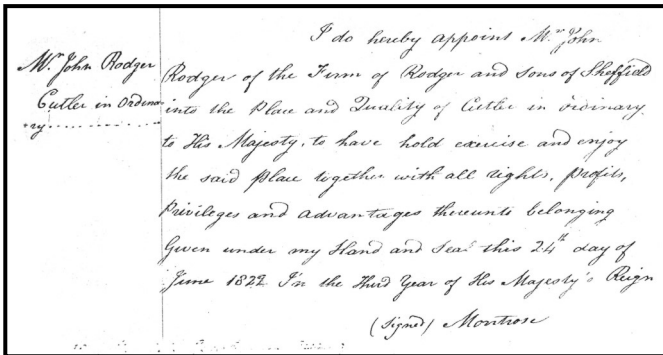 Mr. John Rodger
Cutler in Ordina
ry
I do hereby appoint Mr. John
Rodger of the Firm of Rodger and Sons of Sheffield
into the Place and Quality of Cutler in Ordinary
to His Majesty, to have hold exercise and enjoy
the said Place together with all rights, profits,
Privileges and advantages thereunto belonging
Given under my Hand and Seal this 24th day of
June 1822 In the Third Year of His Majesty's Reign
(Signed) Montrose